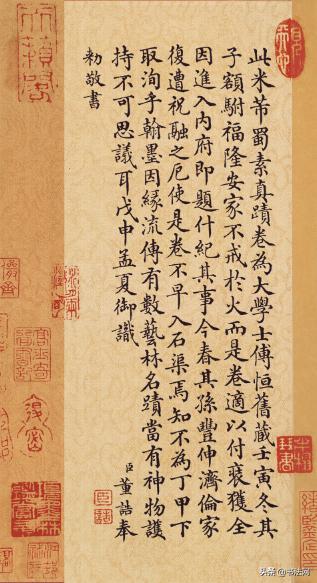 此米芾蜀素真蹟卷為大學士傅恒舊藏壬寅冬其
子額駙福隆安家不戒於火而是卷適以付裝獲全
因進入內府即題什紀其事今春其孫豐伸濟倫家
復遭祝融之厄使是卷不早入石渠焉知不為丁甲下
取洵乎翰墨因緣流傳有數藝林名蹟當有神物護
持不可思議耳戊申孟夏御識
臣董誥奉
勅敬書
头条 @书法网